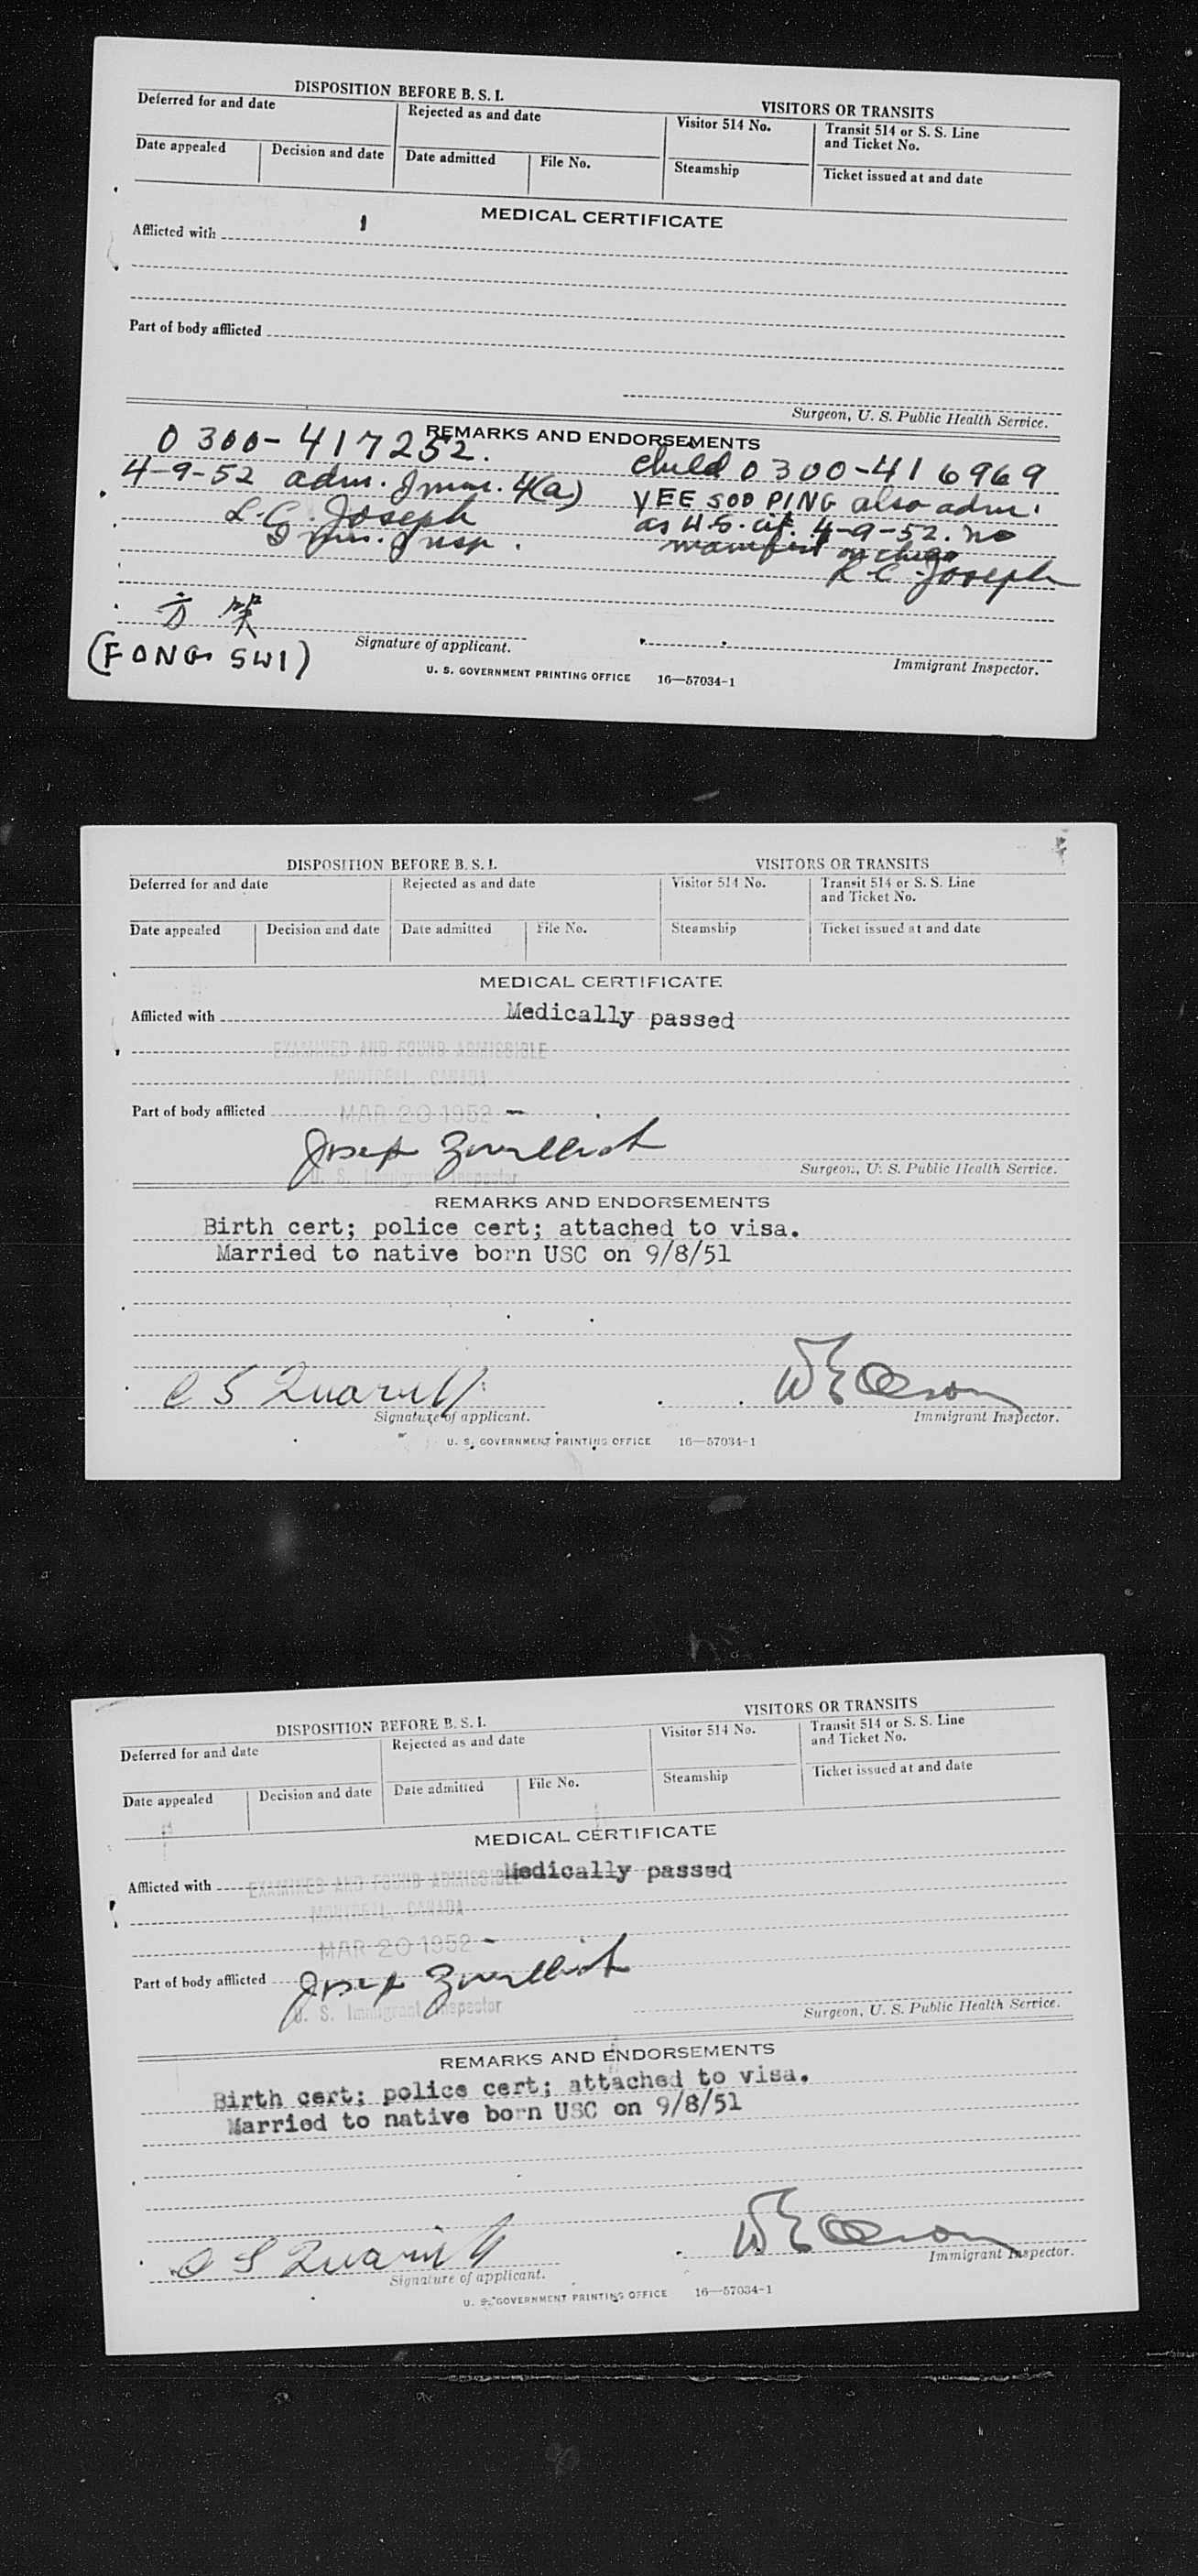 DISPOSITION BEFORE B. S. I.
VISITORS OR TRANSITS
Deferred for and date
Rejected as and date
Visitor 514 No.
Transit 514 or S. S. Line
and Ticket No.
Date appealed
Decision and date
Date admitted
File No.
Steamship
Ticket issued at and date
MEDICAL CERTIFICATE
Afflicted with
Part of body afflicted
Surgeon, U. S. Public Health Service.
REMARKS AND ENDORSEMENTS
0300-417252.
child 0300-416969
4-9-52 adm. Imm. 4(a)
YEE SOO PING also adm.
L.C. Joseph
as U.S. cit. 4-9-52. no
Imm. Insp.
manifest on
L.C. Joseph
方 笑
(FONG SWI)
Signature of applicant.
Immigrant Inspector.
U. S. GOVERNMENT PRINTING OFFICE 16—57034-1
DISPOSITION BEFORE B. S. I.
VISITORS OR TRANSITS
Deferred for and date
Rejected as and date
Visitor 514 No.
Transit 514 or S. S. Line
and Ticket No.
Date appealed
Decision and date
Date admitted
File No.
Steamship
Ticket issued at and date
MEDICAL CERTIFICATE
Afflicted with Medically passed
EXAMINED AND FOUND ADMISSIBLE
MONTREAL, CANADA
Part of body afflicted MAR 20 1952
U. S. Immigrant Inspector
Surgeon, U. S. Public Health Service.
REMARKS AND ENDORSEMENTS
Birth cert; police cert; attached to visa.
Married to native born USC on 9/8/51
Signature of applicant.
Immigrant Inspector.
U. S. GOVERNMENT PRINTING OFFICE 16—57034-1
DISPOSITION BEFORE B. S. I.
VISITORS OR TRANSITS
Deferred for and date
Rejected as and date
Visitor 514 No.
Transit 514 or S. S. Line
and Ticket No.
Date appealed
Decision and date
Date admitted
File No.
Steamship
Ticket issued at and date
MEDICAL CERTIFICATE
Afflicted with EXAMINED AND FOUND ADMISSIBLE Medically passed
MONTREAL, CANADA
MAR 20 1952
Part of body afflicted
U. S. Immigrant Inspector
Surgeon, U. S. Public Health Service.
REMARKS AND ENDORSEMENTS
Birth cert; police cert; attached to visa.
Married to native born USC on 9/8/51
Signature of applicant.
Immigrant Inspector.
U. S. GOVERNMENT PRINTING OFFICE 16—57034-1